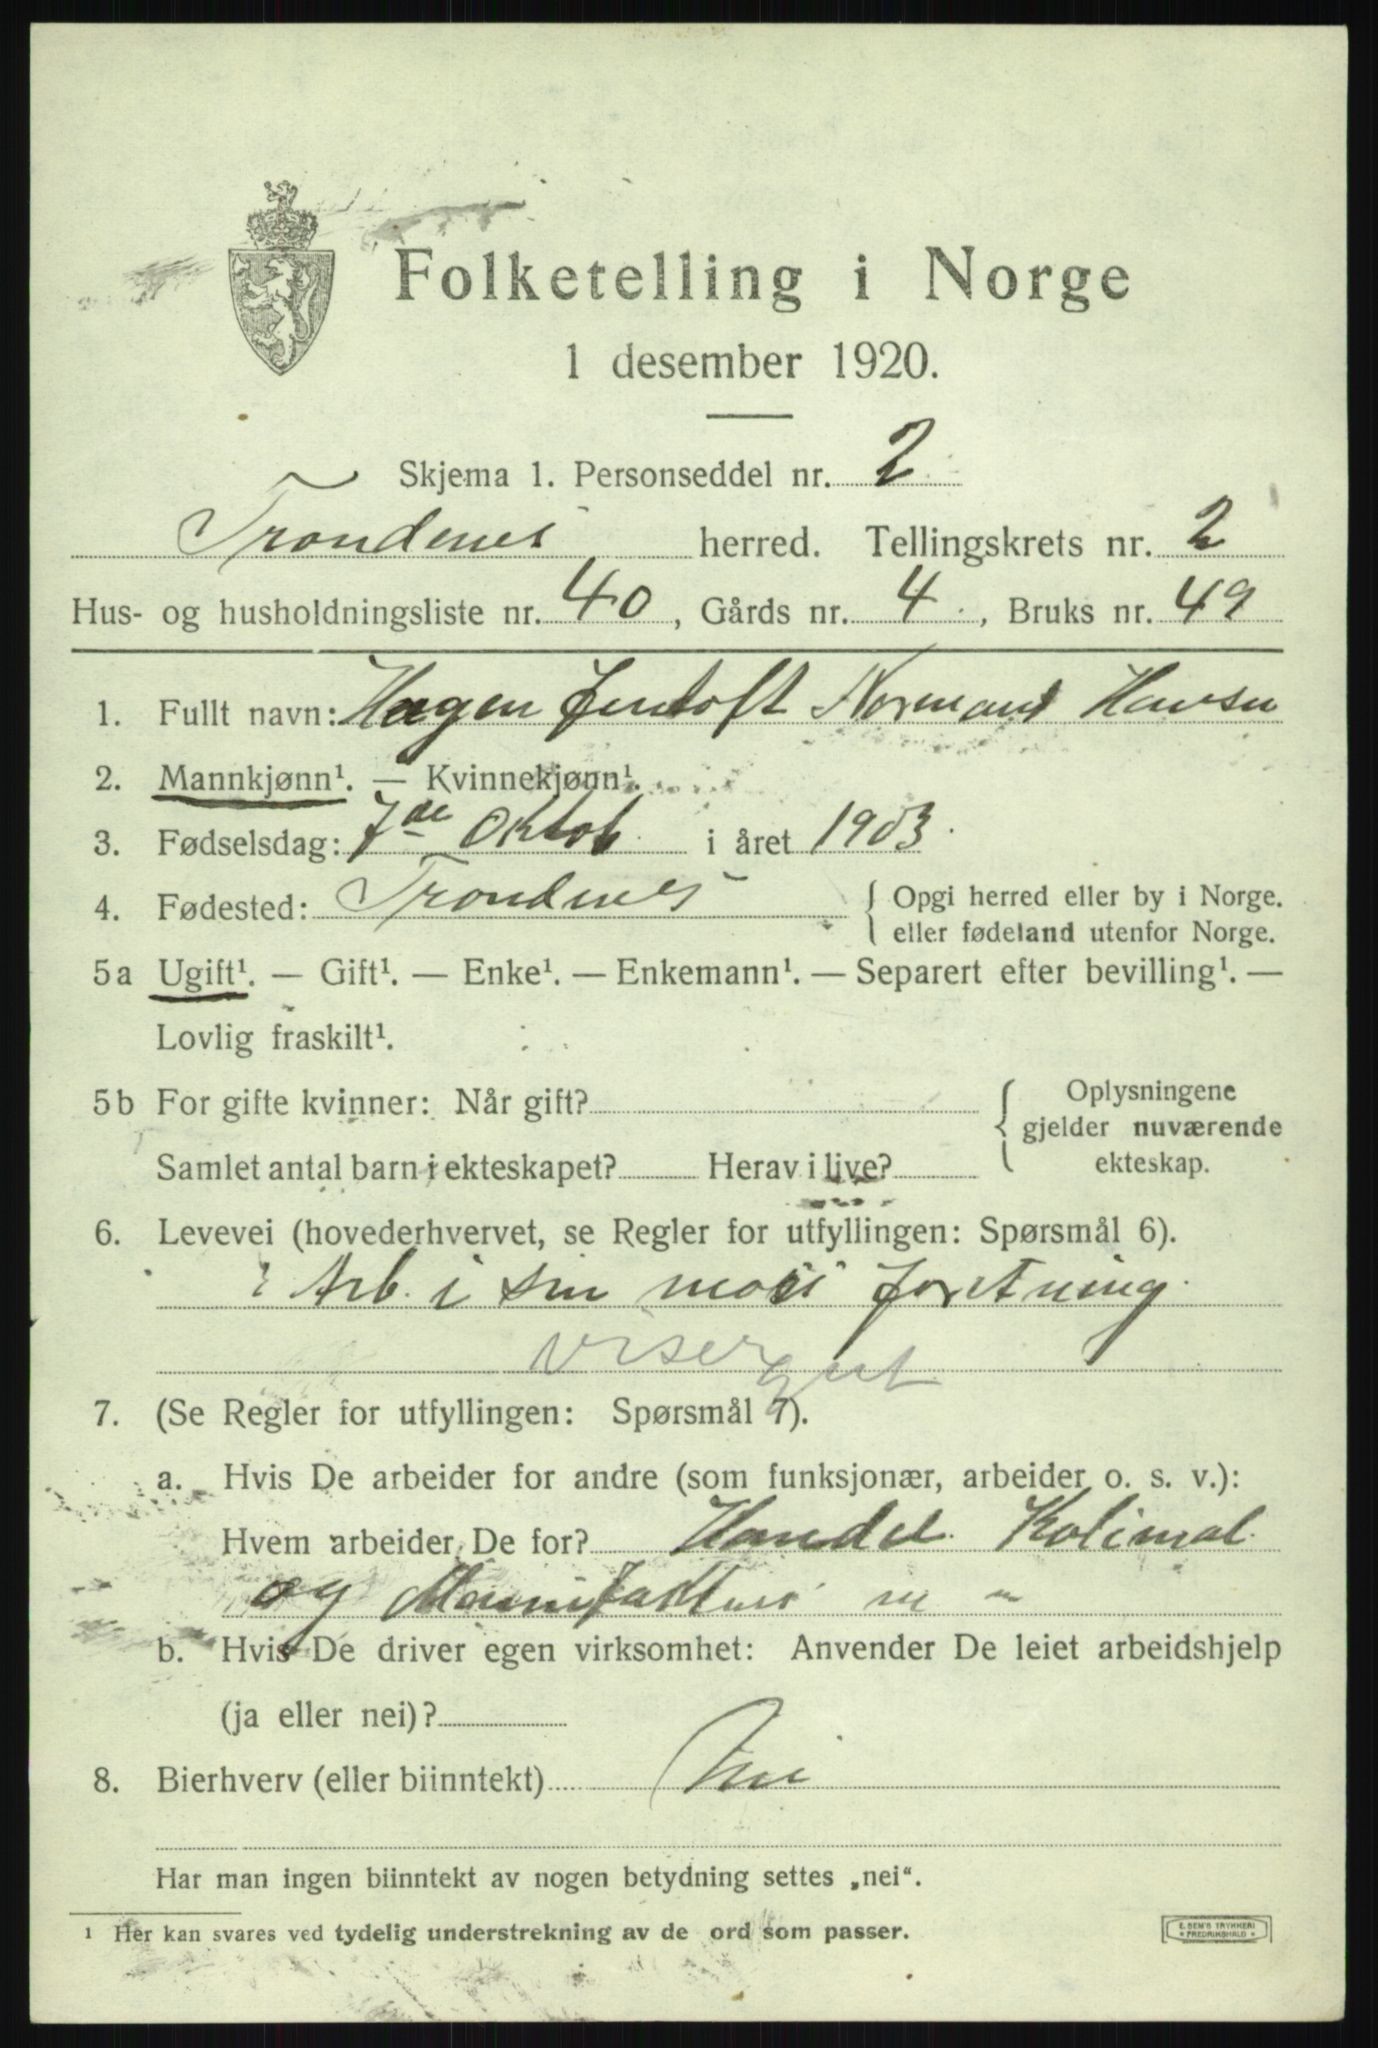 Folketelling i Norge
1 desember 1920.
Skjema 1. Personseddel nr. 2
Trondenes herred. Tellingskrets nr. 2
Hus- og husholdningsliste nr. 40, Gårds nr. 4, Bruks nr. 49
1. Fullt navn: Hagen Jentoft Normann Hansen
2. Mannkjønn¹. — Kvinnekjønn¹.
3. Fødselsdag: 7de Oktob i året 1903.
4. Fødested: Trondenes { Opgi herred eller by i Norge.
eller fødeland utenfor Norge.
5a Ugift¹. — Gift¹. — Enke¹. — Enkemann¹. — Separert efter bevilling¹. —
Lovlig fraskilt¹.
5b For gifte kvinner: Når gift? { Oplysningene
gjelder nuværende
Samlet antal barn i ekteskapet? Herav i live? ekteskap.
6. Levevei (hovederhvervet, se Regler for utfyllingen: Spørsmål 6).
Arb. i sin mors foretning
visergut
7. (Se Regler for utfyllingen: Spørsmål 7).
a. Hvis De arbeider for andre (som funksjonær, arbeider o. s. v.):
Hvem arbeider De for? Handel Kolonial
og Manufaktur
b. Hvis De driver egen virksomhet: Anvender De leiet arbeidshjelp
(ja eller nei)?
8. Bierhverv (eller biinntekt) Nei
Har man ingen biinntekt av nogen betydning settes „nei“.
1 Her kan svares ved tydelig understrekning av de ord som passer.
E. SEM'S TRYKKERI
* FREDRIKSHALD *